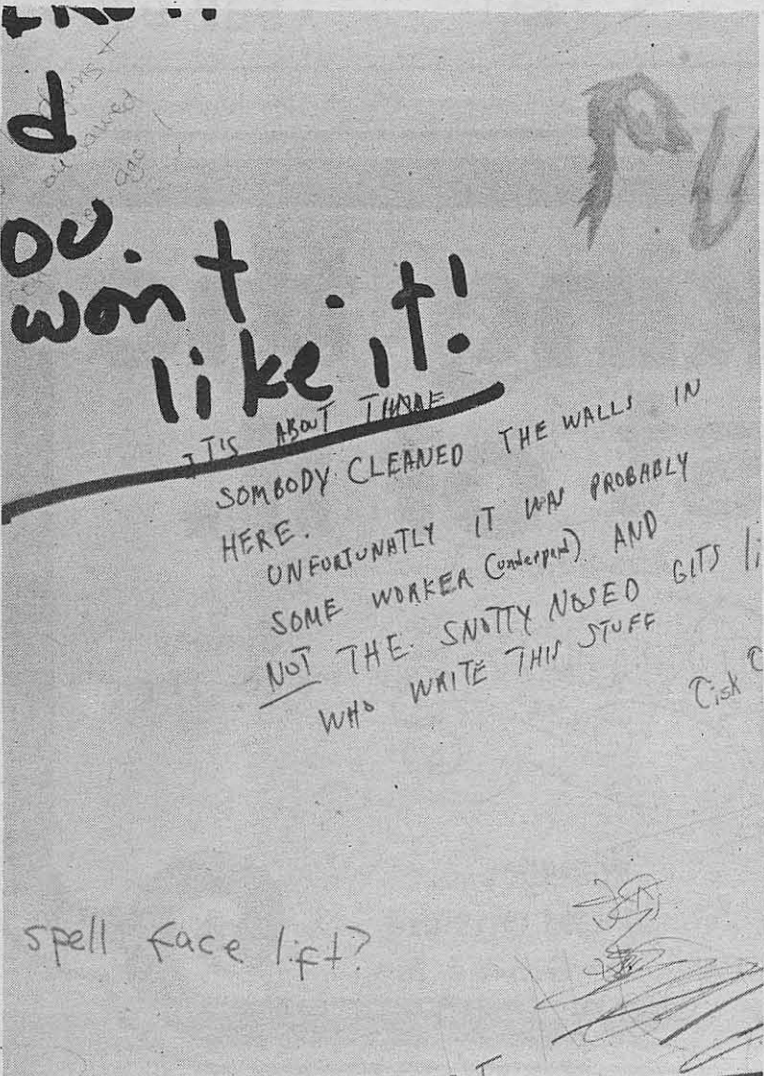 d
ou.
won't
like it!
IT'S ABOUT
SOMBODY CLEANED THE WALLS IN
HERE.
UNFORTUNATLY IT WAS PROBABLY
SOME WORKER (underpaid) AND
NOT THE SNOTTY NOSED GITS
WHO WRITE THIS STUFF
Tisk
spell face lift?